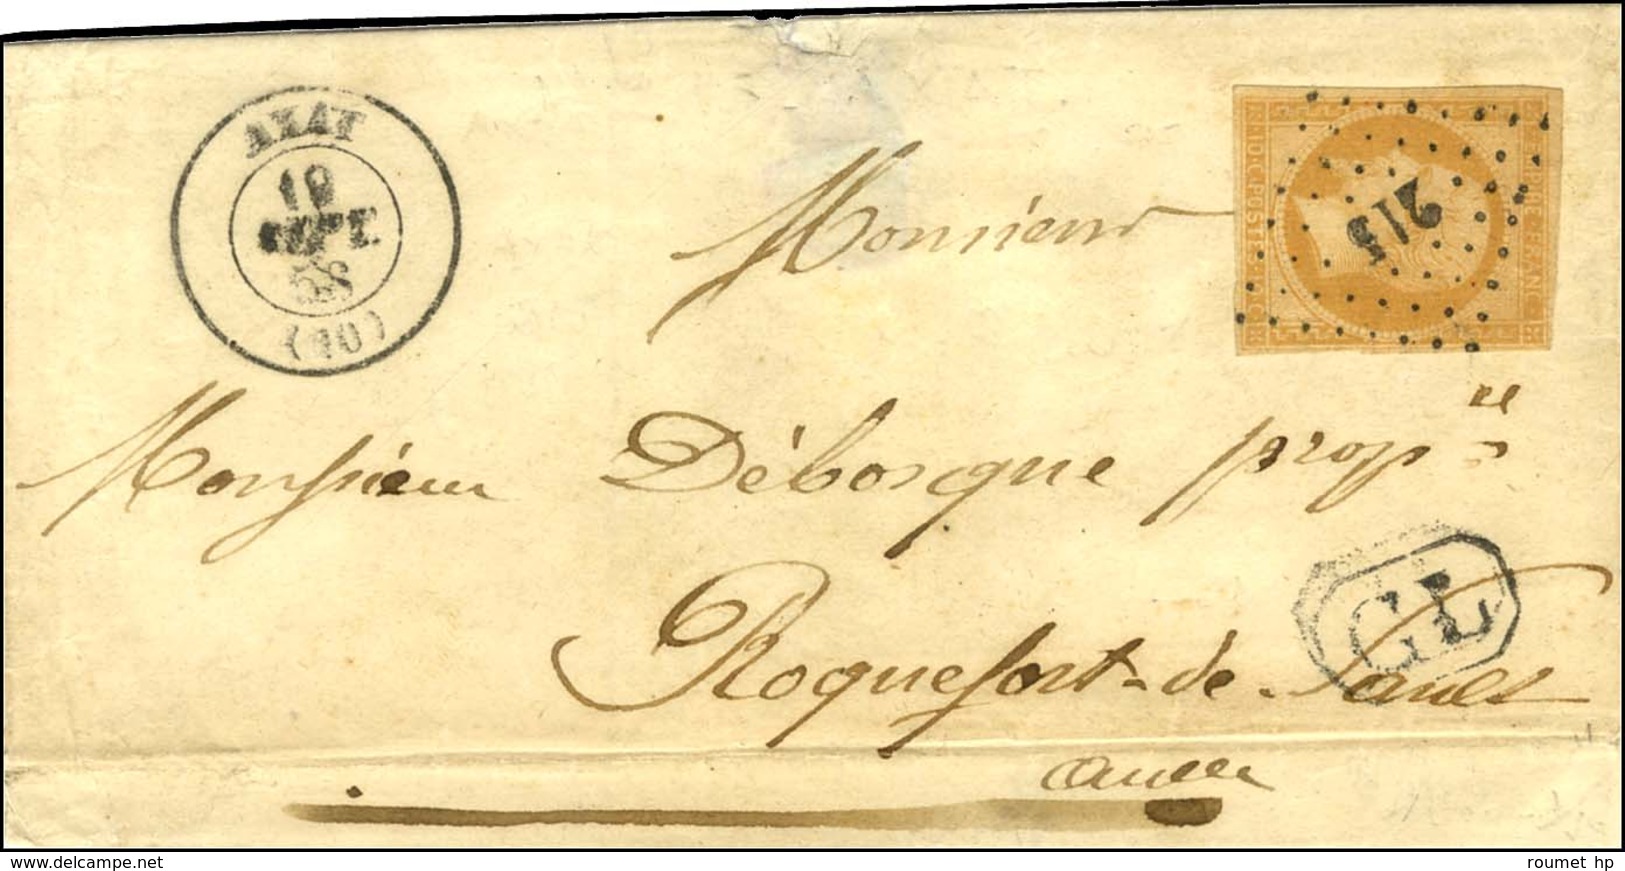 AXAT
19
SEPT.
58
(10)
10.C POSTES 10.C
EMPIRE FRANC
215
Monsieur
Monsieur Débosque prop.re
Roquefort-de-Sault
GL
Aude
www.delcampe.net
roumet hp